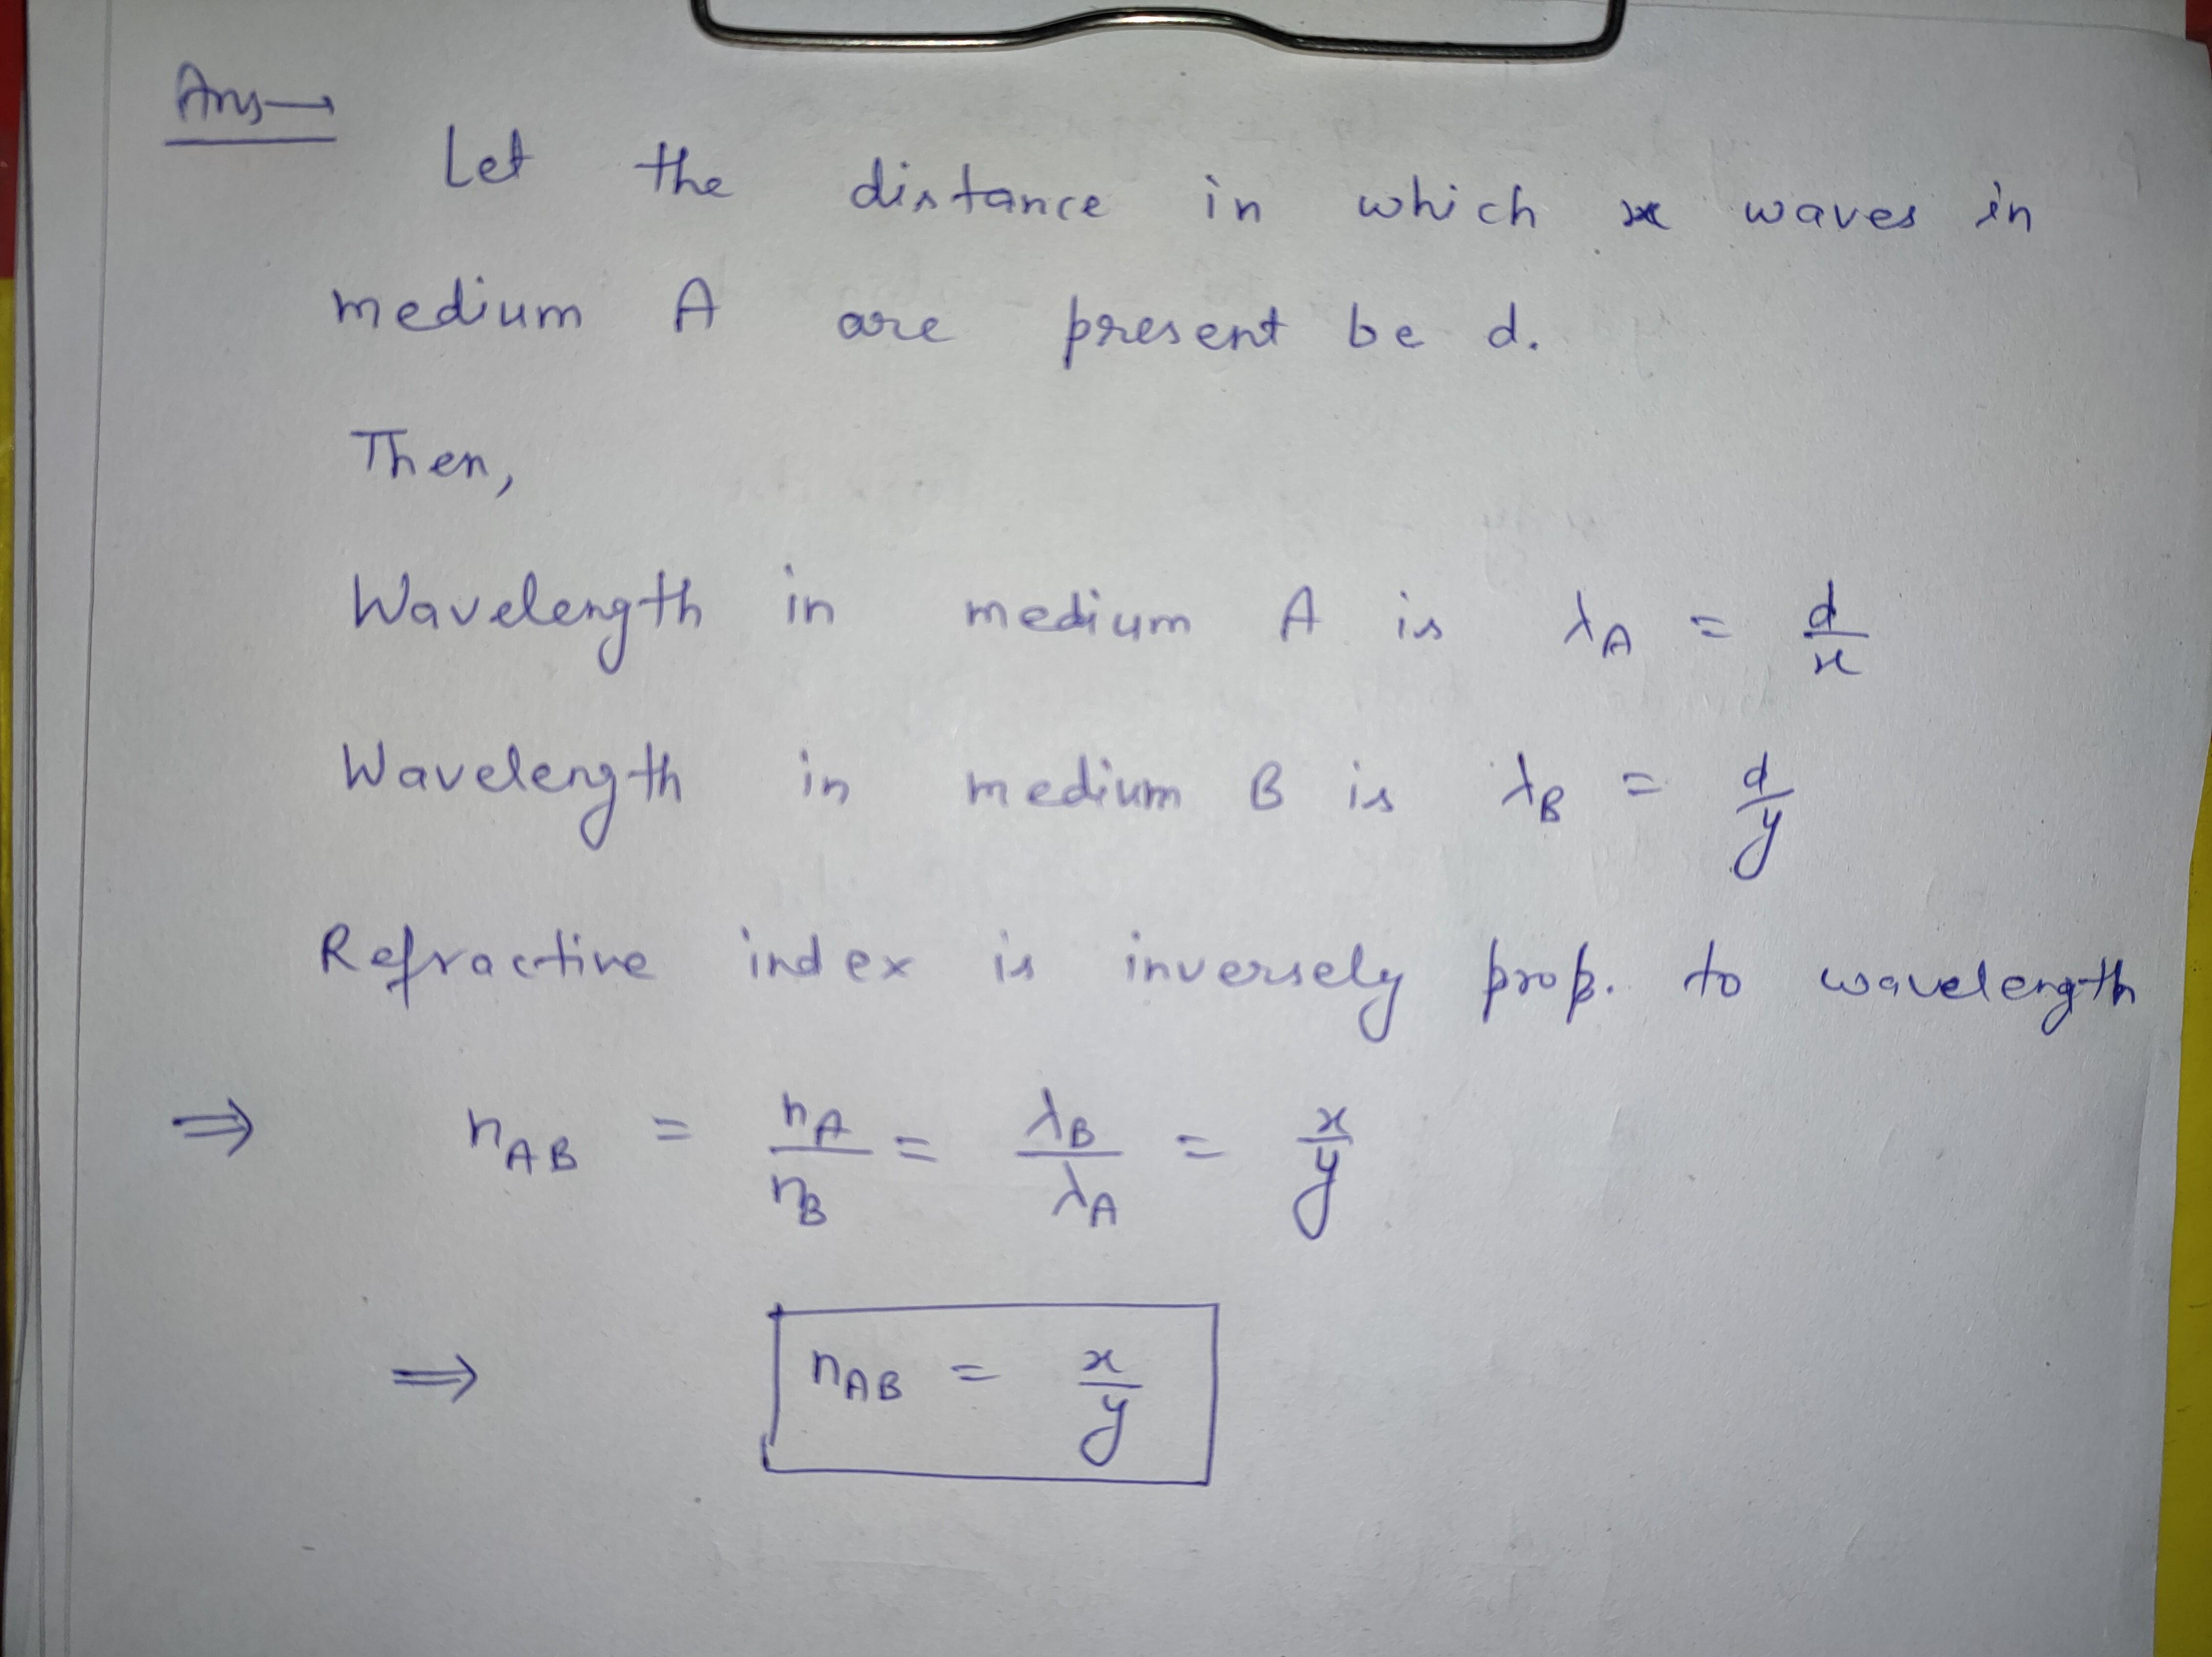 Ans→
Let the distance in which x waves in
medium A are present be d.
Then,
Wavelength in medium A is λA = d/x
Wavelength in medium B is λB = d/y
Refractive index is inversely prop. to wavelength
⇒ nAB = nA/nB = λB/λA = x/y
⇒ nAB = x/y